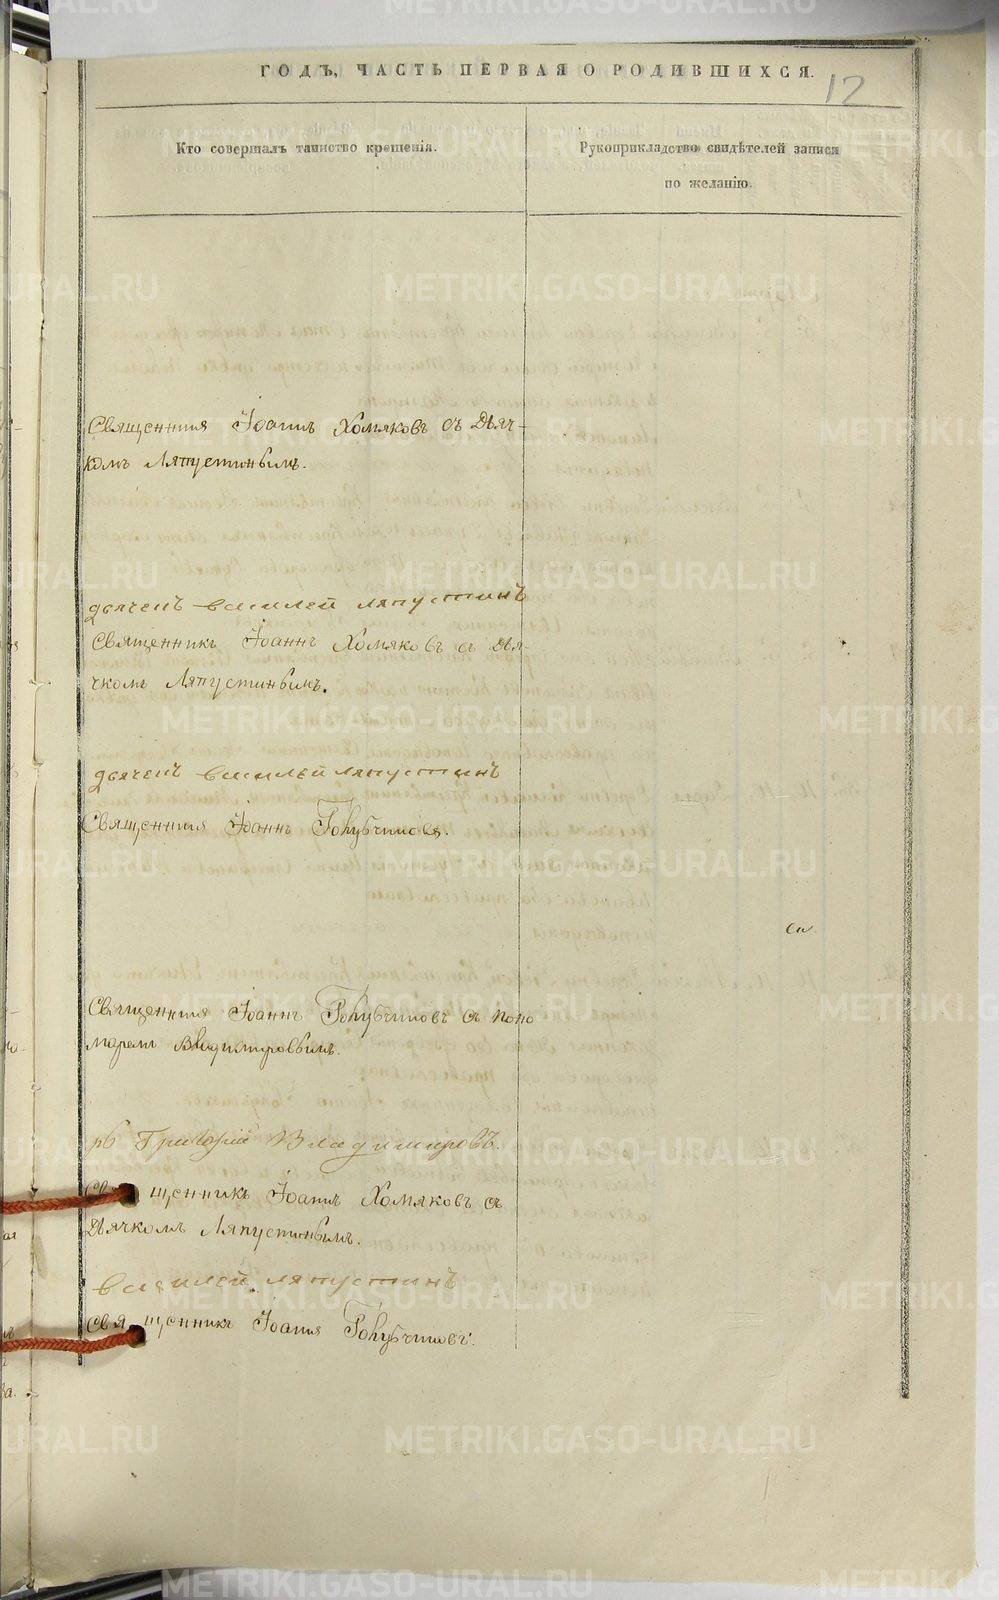 ГОДЪ, ЧАСТЬ ПЕРВАЯ О РОДИВШИХСЯ.
12
Кто совершалъ таинство крещенія.
Рукоприкладство свидѣтелей записи
по желанію.
Священникъ Іоаннъ Хомяковъ съ Дьяч-
комъ Ляпустинымъ.
дьячекъ василей ляпустинъ
Священникъ Іоаннъ Хомяковъ съ Дья-
чкомъ Ляпустинымъ.
дьячекъ василей ляпустинъ
Священникъ Іоаннъ Голубчиковъ.
Священникъ Іоаннъ Голубчиковъ съ поно
маремъ Владимировымъ.
Григорій Владимировъ.
щенникъ Іоаннъ Хомяковъ съ
Дьячкомъ Ляпустинымъ.
василей ляпустинъ
Священникъ Іоаннъ Голубчиковъ.
METRIKI.GASO-URAL.RU